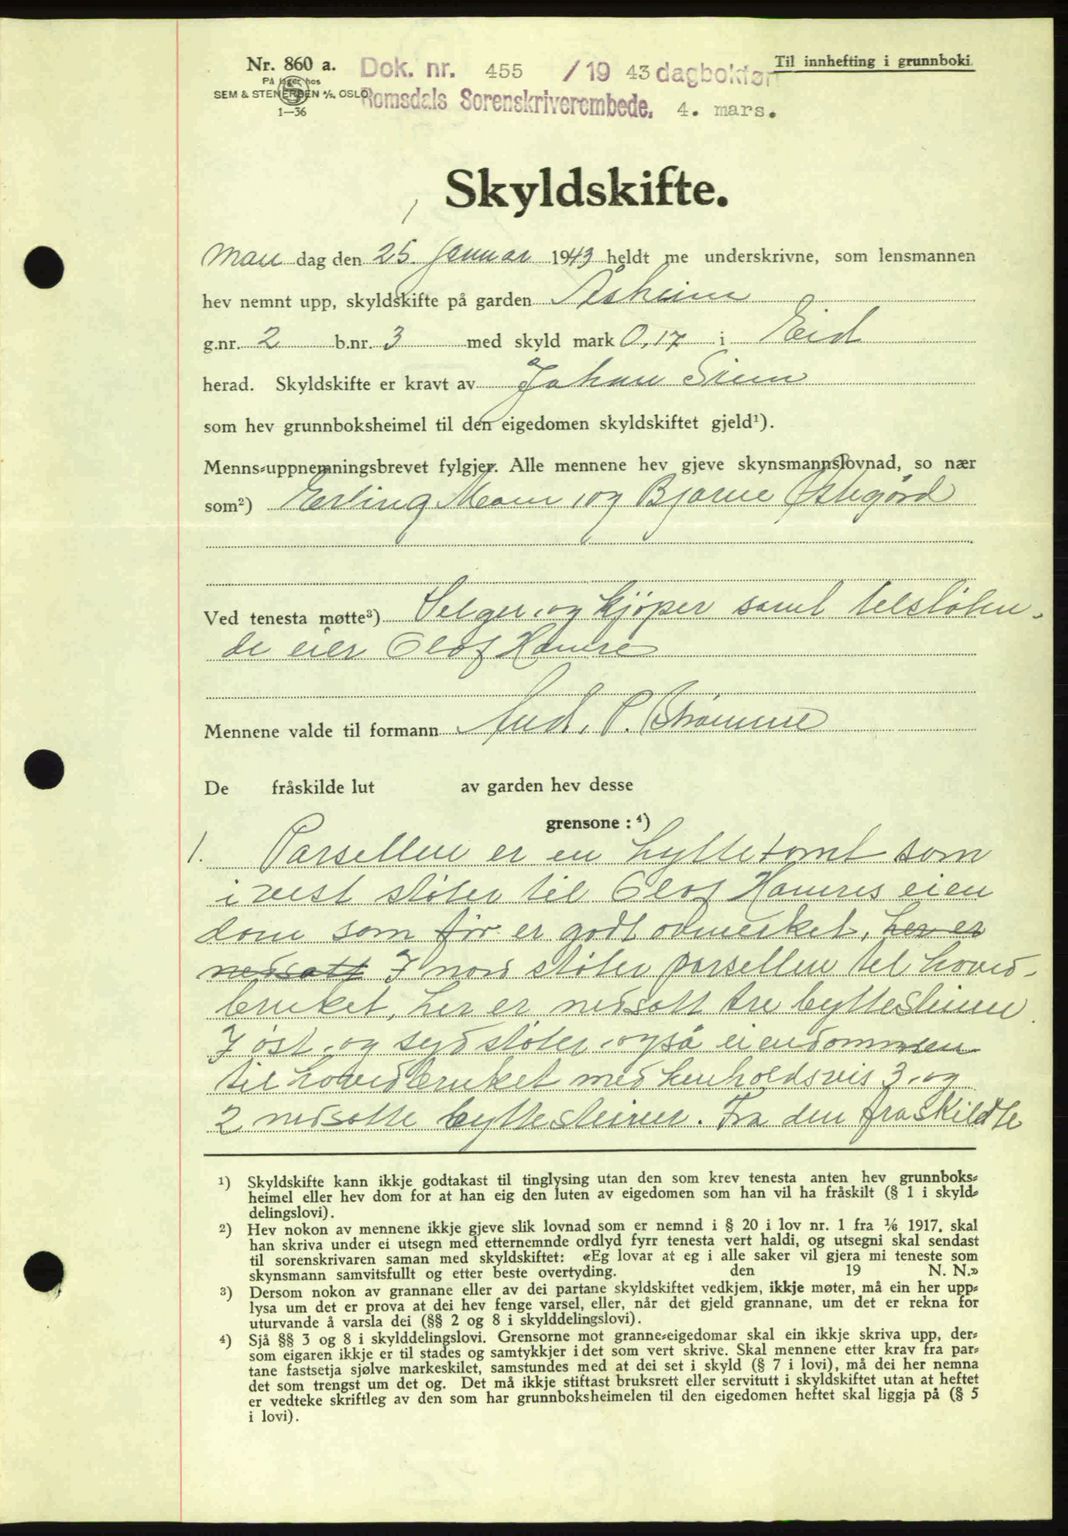 Nr. 860 a.
På lager hos
SEM & STENERSEN A/S, OSLO
1—36
Dok. nr. 455 / 19 43 dagboktør
Romsdals Sorenskriverembede, 4. mars.
Til innhefting i grunnboki
Skyldskifte.
Man dag den 25. Januar 1943 heldt me underskrivne, som lensmannen
hev nemnt upp, skyldskifte på garden Åsheim
g.nr. 2 b.nr. 3 med skyld mark 0,17 i Eid
herad. Skyldskifte er kravt av Johan Siem
som hev grunnboksheimel til den eigedomen skyldskiftet gjeld¹).
Menns-uppnemningsbrevet fylgjer. Alle mennene hev gjeve skynsmannslovnad, so nær
som²) Erling Moen, og Bjarne Østigård
Ved tenesta møtte³) Selger, og kjøper samt tilstøten-
de eier Olof Hamre
Mennene valde til formann And. P. Strømme
De fråskilde lut av garden hev desse
grensone : ⁴)
1. Parsellen er en hyttetomt som
i vest støter til Olof Hamres eien
dom som før er godt avmerket, her er
nedsatt I nord støter parsellen til hoved-
bruket, her er nedsatt tre byttesteiner.
I øst, og syd støter, også eiendommen
til hovedbruket med henholdsvis 3, og
2 nedsatte byttesteiner. Fra den fraskildte
¹) Skyldskifte kann ikkje godtakast til tinglysing utan den som krev tenesta anten hev grunnboks-
heimel eller hev dom for at han eig den luten av eigedomen som han vil ha fråskilt (§ 1 i skyld-
delingslovi).
²) Hev nokon av mennene ikkje gjeve slik lovnad som er nemnd i § 20 i lov nr. 1 fra 1/6 1917, skal
han skriva under ei utsegn med etternemnde ordlyd fyrr tenesta vert haldi, og utsegni skal sendast
til sorenskrivaren saman med skyldskiftet: «Eg lovar at eg i alle saker vil gjera mi teneste som
skynsmann samvitsfullt og etter beste overtyding. den 19 N. N.»
³) Dersom nokon av grannane eller av dei partane skyldskiftet vedkjem, ikkje møter, må ein her upp-
lysa um det er prova at dei hev fenge varsel, eller, når det gjeld grannane, um det er rekna for
uturvande å varsla dei (§§ 2 og 8 i skylddelingslovi).
⁴) Sjå §§ 3 og 8 i skylddelingslovi. Grensorne mot granne-eigedomar skal ein ikkje skriva upp, der-
som eigaren ikkje er til stades og samtykkjer i det som vert skrive. Skal mennene etter krav fra par-
tane fastsetja sjølve markeskilet, samstundes med at dei set i skyld (§ 7 i lovi), må dei her nemna
det som trengst um det og. Det må ikkje stiftast bruksrett eller servitutt i skyldskiftet utan at heftet
er vedteke skriftleg av den som har grunnboksheimelen til den eigedomen heftet skal liggja på (§ 5
i lovi).